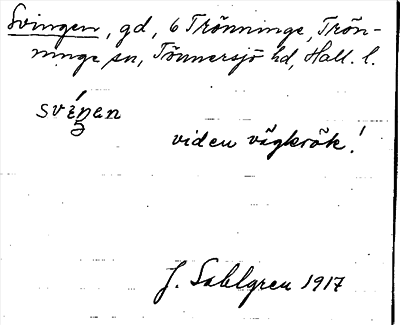 Svingen, gd, 6 Trönninge, Trön-
ninge sn, Tönnersjö hd, Hall. l.
svíŋən
viden vägkrök!
J. Sahlgren 1917